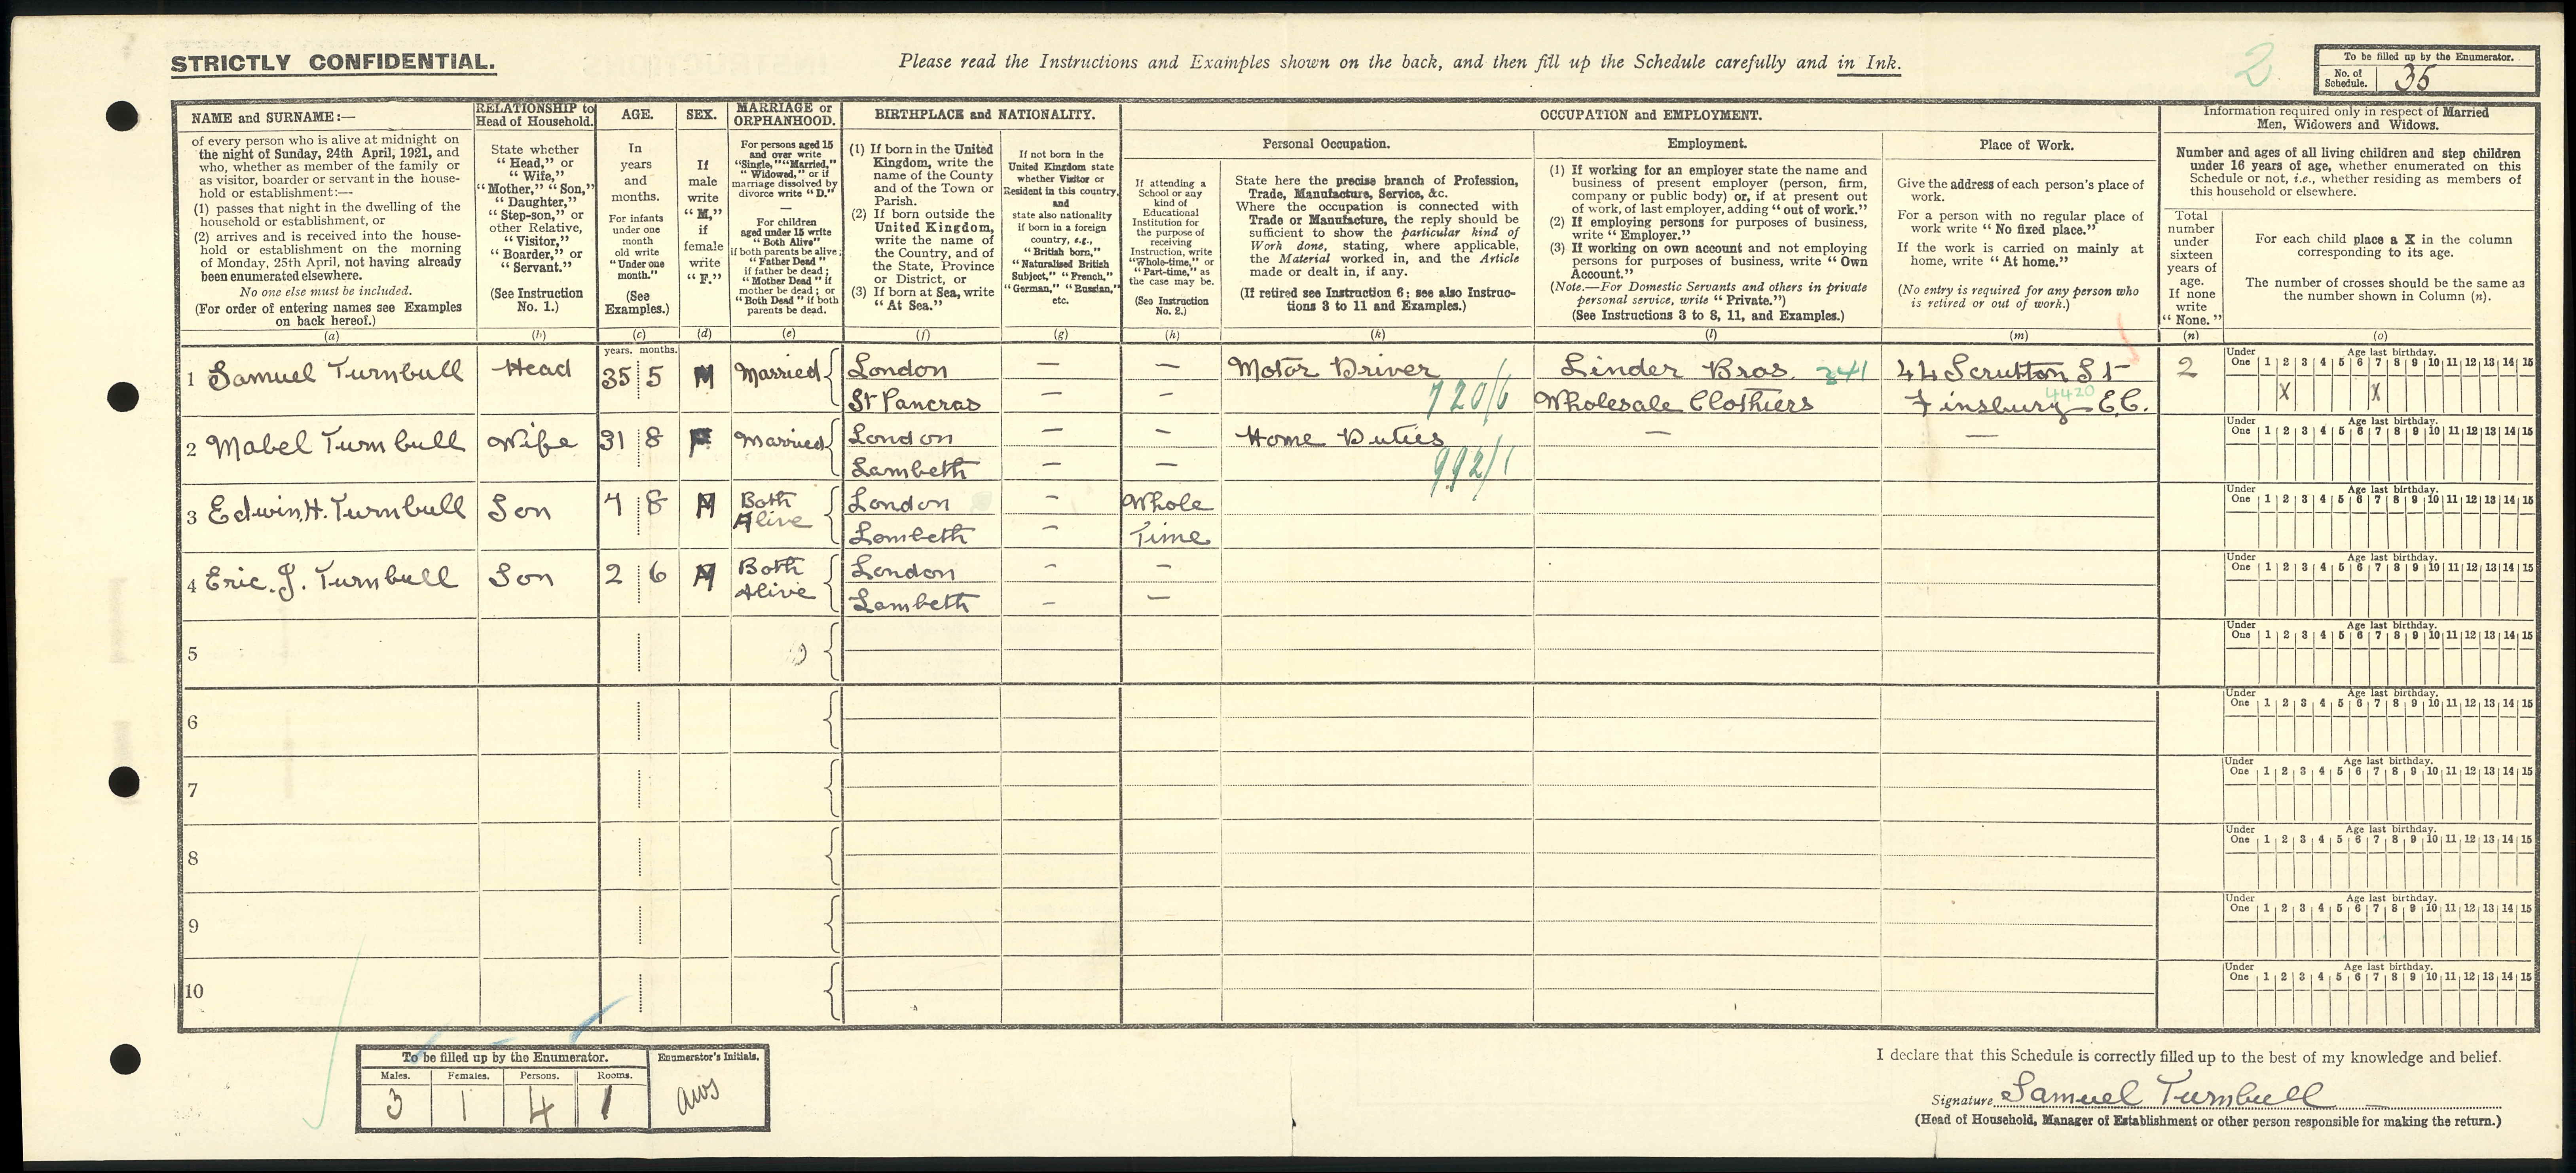 STRICTLY CONFIDENTIAL.
Please read the Instructions and Examples shown on the back, and then fill up the Schedule carefully and in Ink.
2
To be filled up by the Enumerator.
No. of Schedule. 35
NAME and SURNAME:—
of every person who is alive at midnight on
the night of Sunday, 24th April, 1921, and
who, whether as member of the family or
as visitor, boarder or servant in the house-
hold or establishment:—
(1) passes that night in the dwelling of the
household or establishment, or
(2) arrives and is received into the house-
hold or establishment on the morning
of Monday, 25th April, not having already
been enumerated elsewhere.
No one else must be included.
(For order of entering names see Examples
on back hereof.)
(a)
RELATIONSHIP to
Head of Household.
State whether
"Head," or
"Wife,"
"Mother," "Son,"
"Daughter,"
"Step-son," or
other Relative,
"Visitor,"
"Boarder," or
"Servant."
(See Instruction
No. 1.)
(b)
AGE.
In
years
and
months.
For infants
under one
month
old write
"Under one
month."
(See
Examples.)
(c)
SEX.
If
male
write
"M,"
if
female
write
"F."
(d)
MARRIAGE or
ORPHANHOOD.
For persons aged 15
and over write
"Single," "Married,"
"Widowed," or if
marriage dissolved by
divorce write "D."
For children
aged under 15 write
"Both Alive"
if both parents be alive;
"Father Dead"
if father be dead;
"Mother Dead" if
mother be dead; or
"Both Dead" if both
parents be dead.
(e)
BIRTHPLACE and NATIONALITY.
(1) If born in the United
Kingdom, write the
name of the County
and of the Town or
Parish.
(2) If born outside the
United Kingdom,
write the name of
the Country, and of
the State, Province
or District, or
(3) If born at Sea, write
"At Sea."
(f)
If not born in the
United Kingdom state
whether Visitor or
Resident in this country,
and
state also nationality
if born in a foreign
country, e.g.,
"British born,"
"Naturalised British
Subject," "French,"
"German," "Russian,"
etc.
(g)
OCCUPATION and EMPLOYMENT.
If attending a
School or any
kind of
Educational
Institution for
the purpose of
receiving
Instruction, write
"Whole-time," or
"Part-time," as
the case may be.
(See Instruction
No. 2.)
(h)
Personal Occupation.
State here the precise branch of Profession,
Trade, Manufacture, Service, &c.
Where the occupation is connected with
Trade or Manufacture, the reply should be
sufficient to show the particular kind of
Work done, stating, where applicable,
the Material worked in, and the Article
made or dealt in, if any.
(If retired see Instruction 6; see also Instruc-
tions 3 to 11 and Examples.)
(k)
Employment.
(1) If working for an employer state the name and
business of present employer (person, firm,
company or public body) or, if at present out
of work, of last employer, adding "out of work."
(2) If employing persons for purposes of business,
write "Employer."
(3) If working on own account and not employing
persons for purposes of business, write "Own
Account."
(Note.—For Domestic Servants and others in private
personal service, write "Private.")
(See Instructions 3 to 8, 11, and Examples.)
(l)
Place of Work.
Give the address of each person's place of
work.
For a person with no regular place of
work write "No fixed place."
If the work is carried on mainly at
home, write "At home."
(No entry is required for any person who
is retired or out of work.)
(m)
Information required only in respect of Married
Men, Widowers and Widows.
Number and ages of all living children and step children
under 16 years of age, whether enumerated on this
Schedule or not, i.e., whether residing as members of
this household or elsewhere.
Total
number
under
sixteen
years of
age.
If none
write
"None."
(n)
For each child place a X in the column
corresponding to its age.
The number of crosses should be the same as
the number shown in Column (n).
(o)
years. months.
Under One Age last birthday. 1 2 3 4 5 6 7 8 9 10 11 12 13 14 15
1 Samuel Turnbull Head 35 5 M Married London — — Motor Driver Linder Bros. 341 44 Scrutton St 2
St Pancras — — 720/6 Wholesale Clothiers Finsbury E.C. 4420 X X
Under One Age last birthday. 1 2 3 4 5 6 7 8 9 10 11 12 13 14 15
2 Mabel Turnbull Wife 31 8 F Married London — — Home Duties — —
Lambeth — — 992/1
Under One Age last birthday. 1 2 3 4 5 6 7 8 9 10 11 12 13 14 15
3 Edwin H. Turnbull Son 7 8 M Both London — Whole
Alive Lambeth — Time
Under One Age last birthday. 1 2 3 4 5 6 7 8 9 10 11 12 13 14 15
4 Eric. J. Turnbull Son 2 6 M Both London — —
Alive Lambeth — —
Under One Age last birthday. 1 2 3 4 5 6 7 8 9 10 11 12 13 14 15
5
Under One Age last birthday. 1 2 3 4 5 6 7 8 9 10 11 12 13 14 15
6
Under One Age last birthday. 1 2 3 4 5 6 7 8 9 10 11 12 13 14 15
7
Under One Age last birthday. 1 2 3 4 5 6 7 8 9 10 11 12 13 14 15
8
Under One Age last birthday. 1 2 3 4 5 6 7 8 9 10 11 12 13 14 15
9
Under One Age last birthday. 1 2 3 4 5 6 7 8 9 10 11 12 13 14 15
10
To be filled up by the Enumerator. Enumerator's Initials.
Males. Females. Persons. Rooms.
3 1 4 1 aws
I declare that this Schedule is correctly filled up to the best of my knowledge and belief.
Signature Samuel Turnbull
(Head of Household, Manager of Establishment or other person responsible for making the return.)